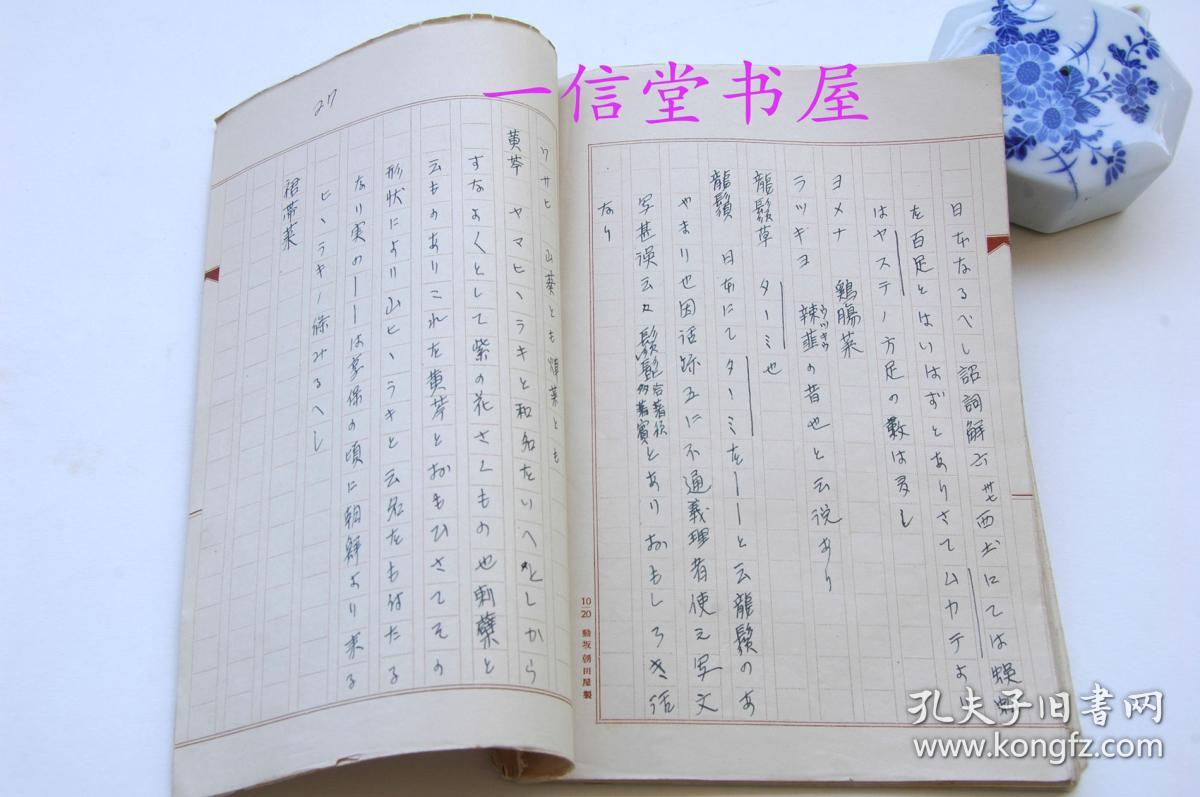 一信堂书屋
日本なるべし詔詞解六廿七西土にては蜈蚣
を百足とはいはずとありさてムカデより
はヤスデノ方足の数は多し
ヨメナ 鶏腸菜
ラツキヨ 辣韮の音也と云説あり
龍鬚草 タータミ也
龍鬚 日本にてタータミをーーと云龍鬚のあ
やまり也因話跡五に不通義理者使之写文
写甚誤云々鬚とありおもしろき話
なり
27
ワサヒ 山葵とも
黄芩 ヤマヒヽラキと和名をいへとしから
すなよくとして紫の花さくもの也刺蘗と
云ものありこれを黄芩とおもひさてその
形状により山ヒヽラキと云名をも付たる
なり実のーーは享保の頃に朝鮮より来る
ヒヽラキノ條みるへし
裙帯菜
10/20 動坂朝日屋製
孔夫子旧书网
www.kongfz.com